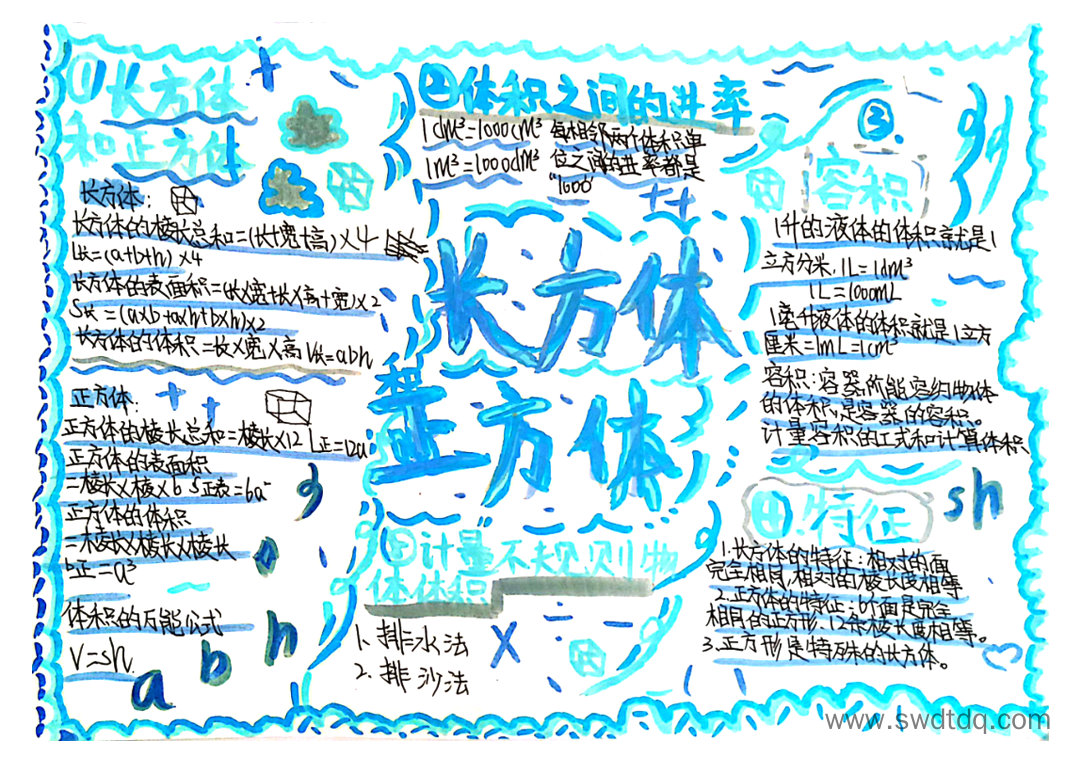 ①长方体
和正方体
长方体：
长方体的棱长总和=(长+宽+高)×4
L长=(a+b+h)×4
长方体的表面积=(长×宽+长×高+宽)×2
S长=(a×b+a×h+b×h)×2
长方体的体积=长×宽×高 V长=abh
正方体：
正方体的棱长总和=棱长×12 L正=12a
正方体的表面积
=棱长×棱×6 S正表=6a²
正方体的体积
=棱长×棱长×棱长
正=a³
体积的万能公式
V=sh
a b h
②体积之间的进率
1dm³=1000cm³ 每相邻两个体积单
1m³=1000dm³ 位之间的进率都是
"1000"
长方体
和
正方体
⑤计量不规则物
体体积
1、排水法
2、排沙法
③.
容积
1升的液体的体积就是1
立方分米,1L=1dm³
1L=1000mL
1毫升液体的体积就是1立方
厘米=1mL=1cm³
容积：容器所能容纳物体
的体积,是容器的容积。
计量容积的工式和计算体积
四.特征
sh
1.长方体的特征：相对的面
完全相同,相对的棱长度相等
2.正方体的特征：6个面是完全
相同的正方形、12条棱长度相等。
3.正方形是特殊的长方体。
www.swdtdq.com